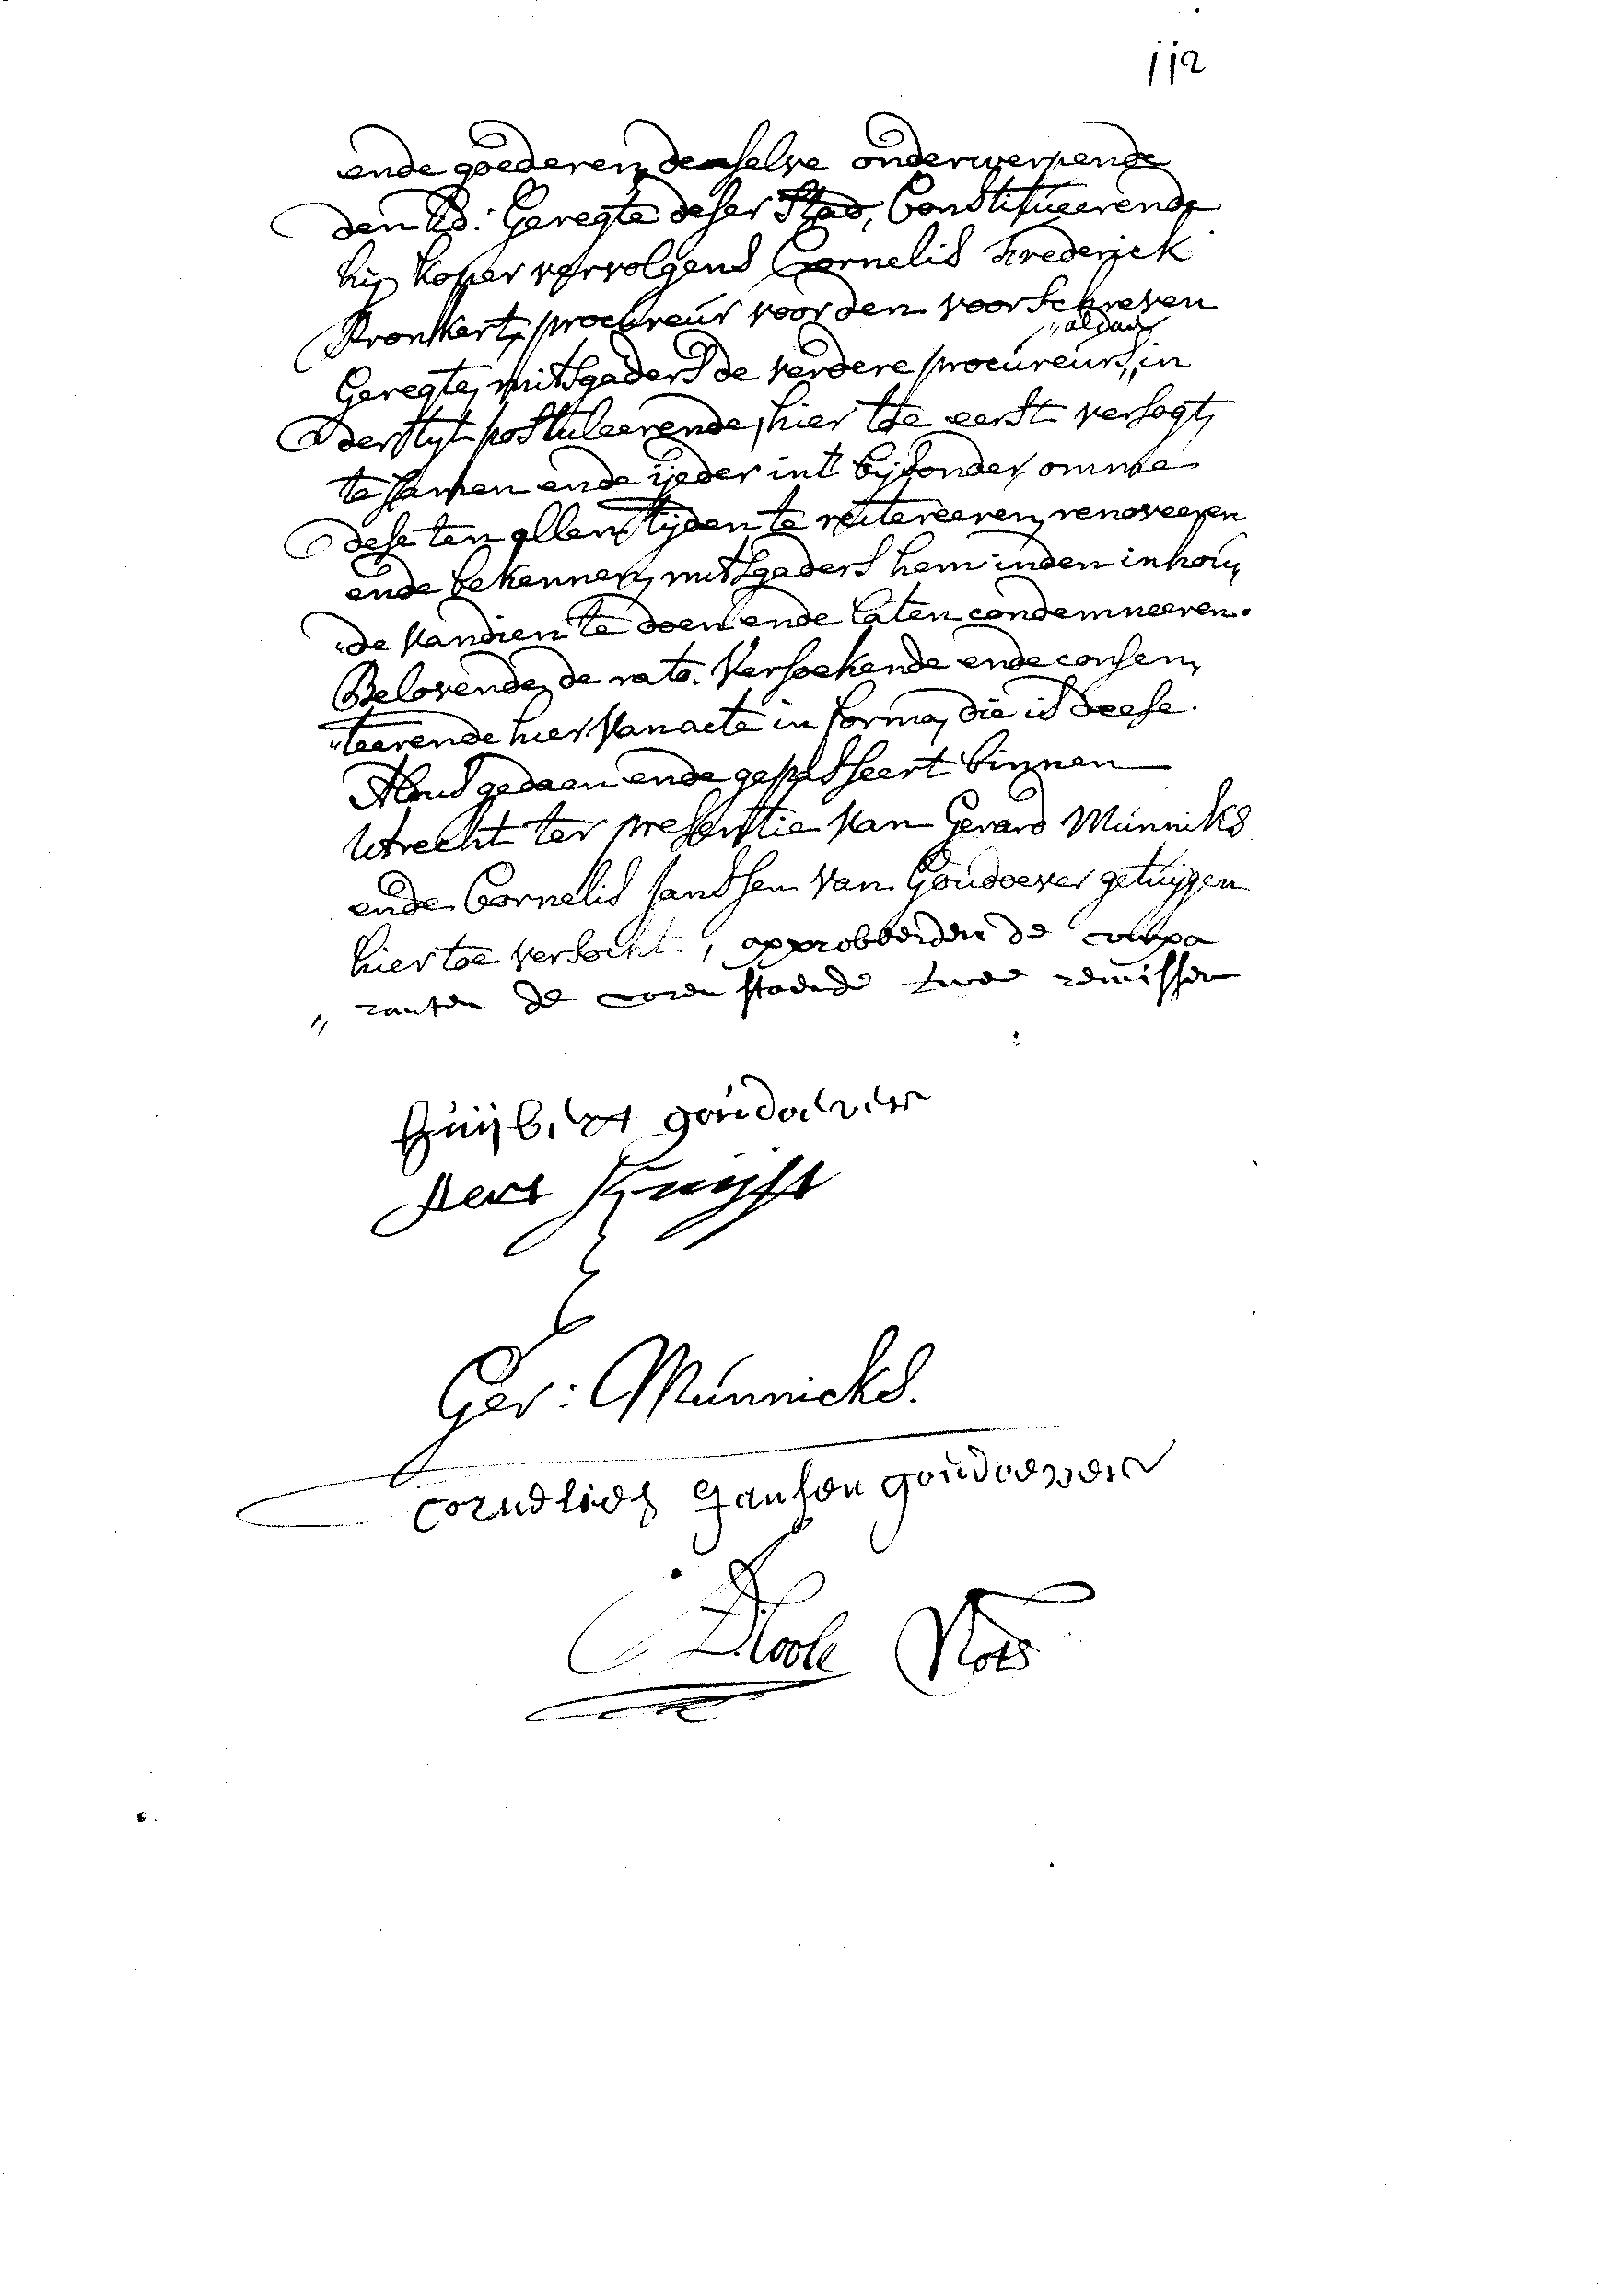 112
ende goederen, denselve onderwerpende
den Ed: Geregte deser Stad, Constitueerende
hij koper vervolgens Cornelis Frederick
Kronkert, procureur voor den voorschreven
„aldaar
Geregte, mitsgaders de verdere procureurs, „in
der tijt postuleerende, hier toe eerst versogt,
te samen ende ijeder int bijsonder, omme
dese ten allen tijden te reitereeren, renoveeren
ende bekennen, mitsgaders hem inden inhou„
„de vandien te doen ende laten condemneeren.
Belovende de rato. Versoekende ende consen„
„teerende hier van acte in forma, die is deese.
Aldus gedaen ende gepasseert binnen
Utrecht ter presentie van Gerard Munniks
ende Cornelis Janssen van Goudoever getuijgen
hier toe versocht., approbeerden de compa
„ ranten de voren staende twee renvissen
Huijbert goudoever
Aert Kruijff
Ger: Munnicks.
Cornelies Jansen goudoever
D: Hoole Nots